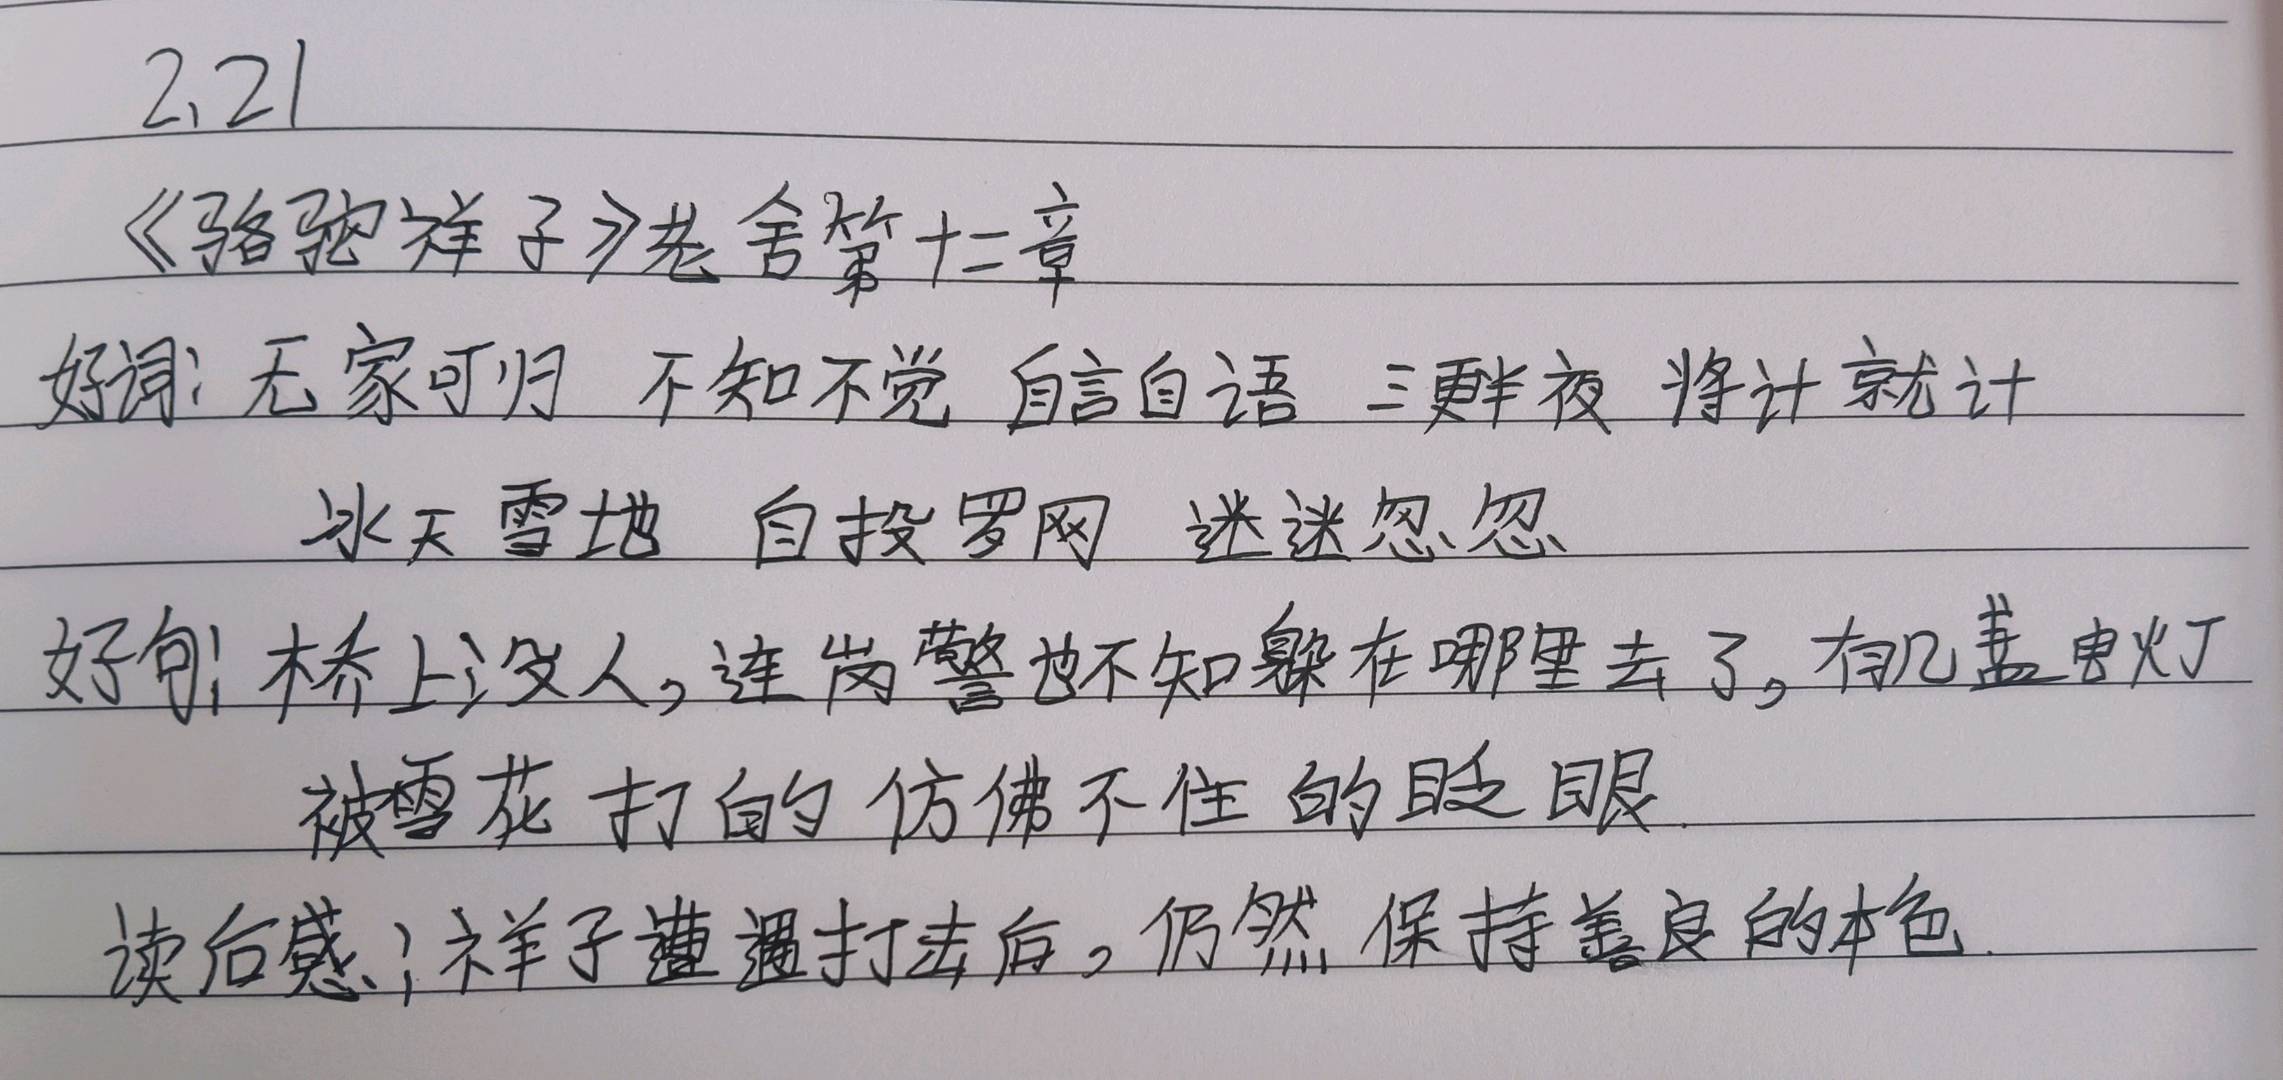 2.21
《骆驼祥子》老舍第十二章
好词:无家可归 不知不觉 自言自语 三更半夜 将计就计
冰天雪地 自投罗网 迷迷忽忽
好句:桥上没人,连岗警也不知躲在哪里去了,有几盖电灯
被雪花打的仿佛不住的眨眼.
读后感:祥子遭遇打击后,仍然保持善良的本色.